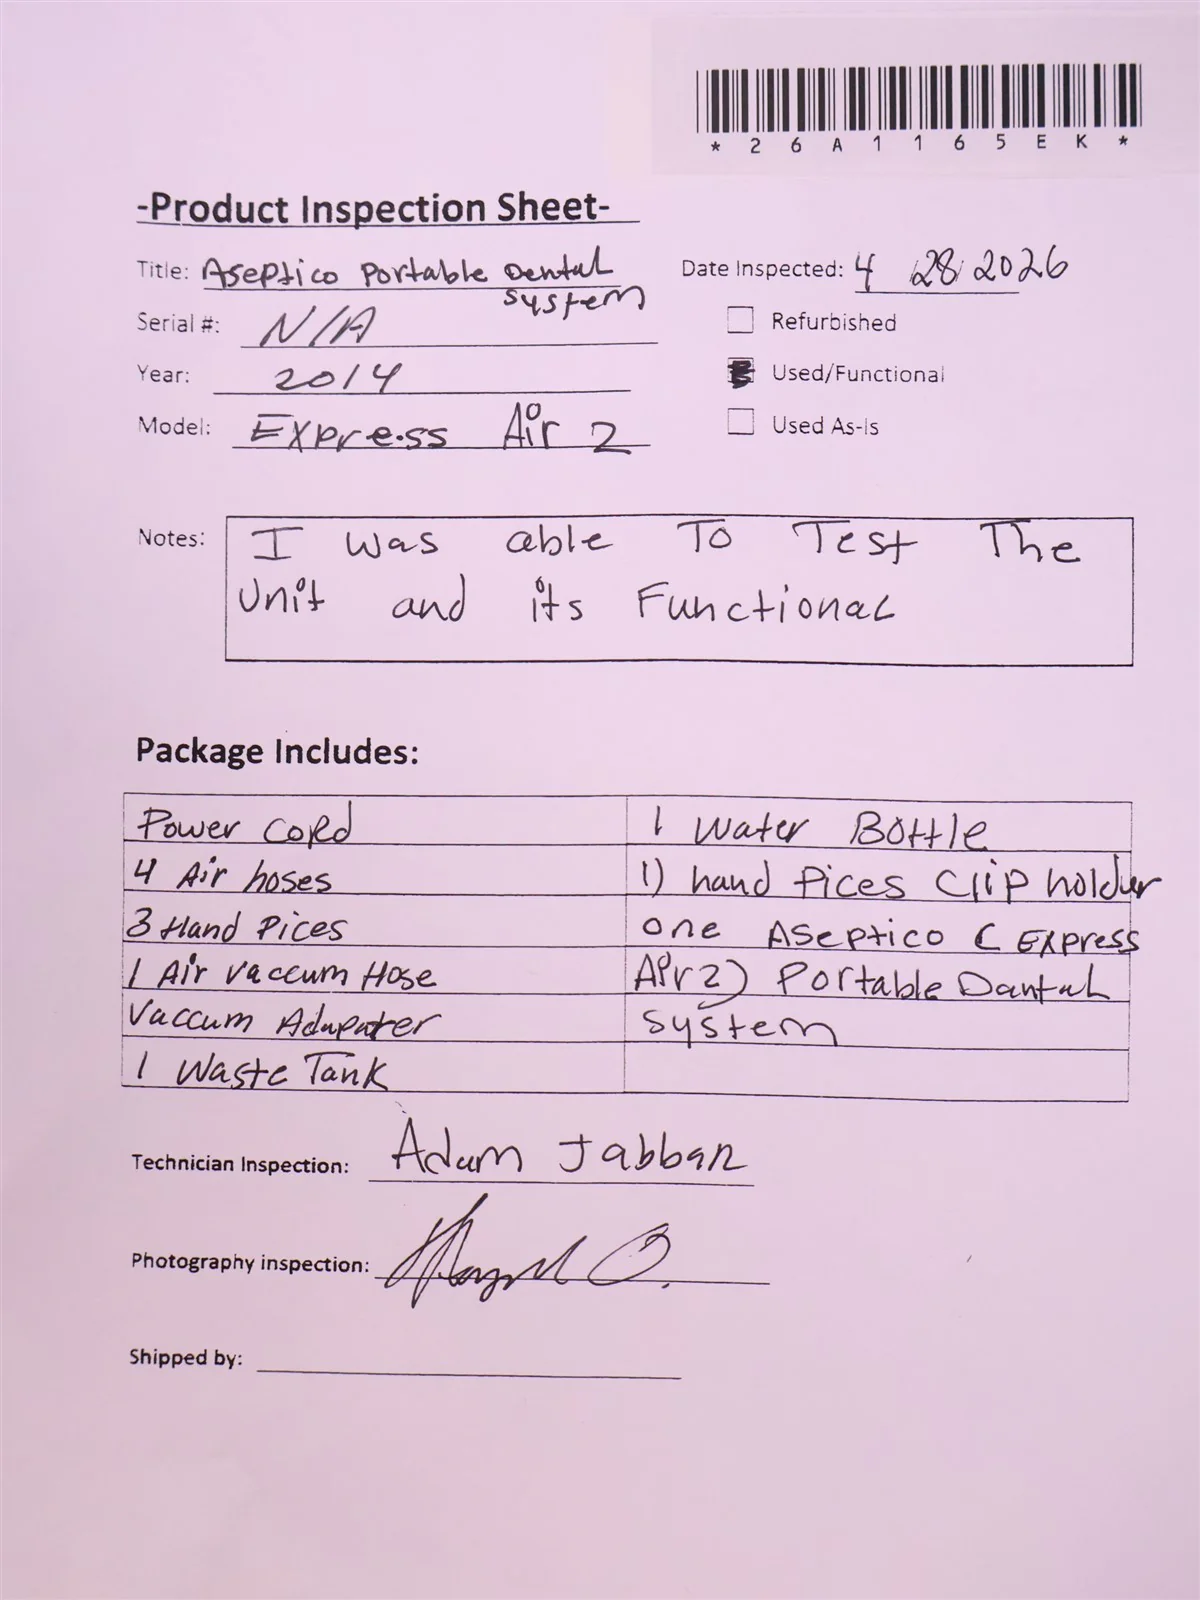 * 2 6 A 1 1 6 5 E K *
-Product Inspection Sheet-
Title: Aseptico Portable Dental
system
Date Inspected: 4 28 2026
Serial #: N/A
Refurbished
Year: 2014
Used/Functional
Model: Express Air 2
Used As-Is
Notes: I was able To Test The
Unit and its Functional
Package Includes:
Power cord
1 Water Bottle
4 Air hoses
1) hand Pices Clip holder
3 Hand Pices
one Aseptico ( Express
1 Air vaccum Hose
Air 2) Portable Dantal
Vaccum Adapater
system
1 Waste Tank
Technician Inspection: Adam Jabbar
Photography inspection:
Shipped by: